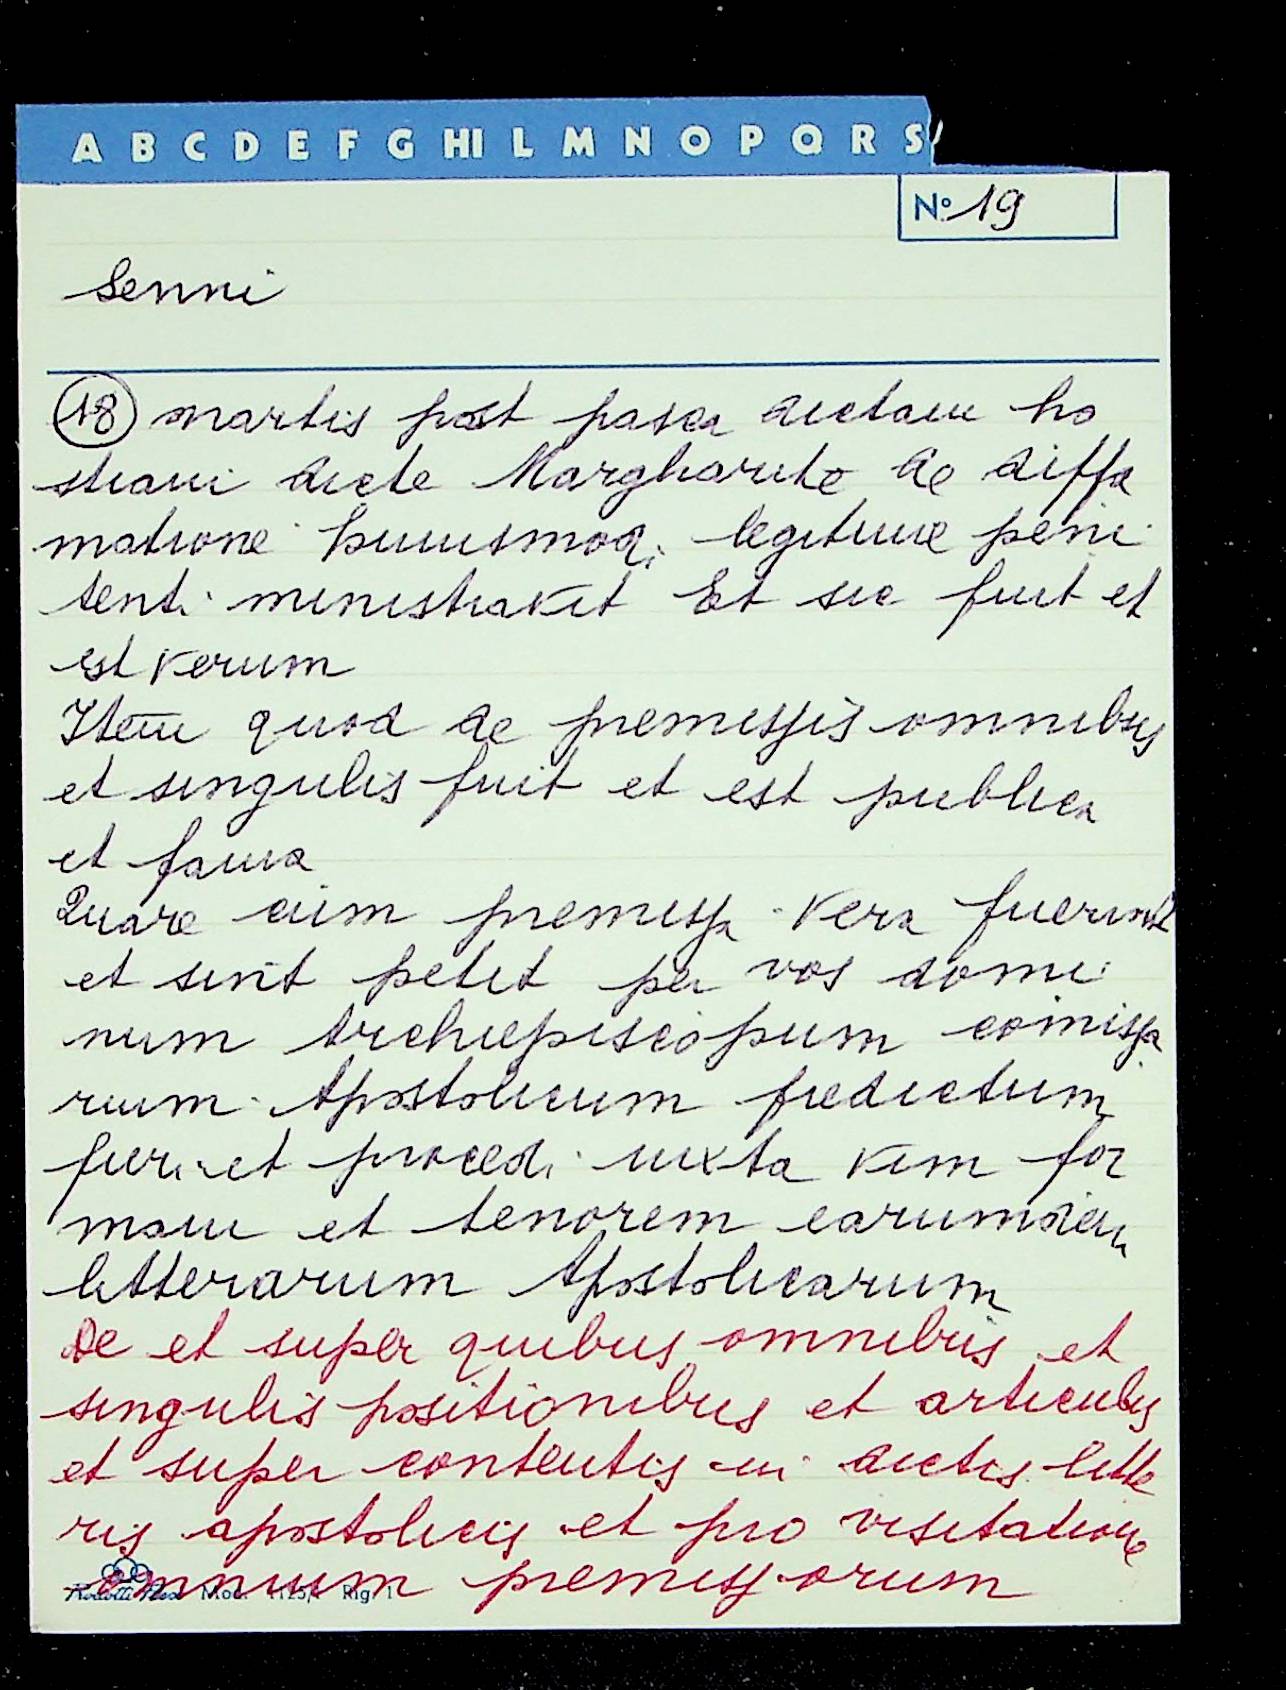 A B C D E F G HI L M N O P Q R S
Nº 19
Senni
18 martis post pasca dictam ho
stiam dicte Margharite de diffa
matione huiusmodi legitime peni
tenti ministravit Et sic fuit et
est verum
Item quod de premissis omnibus
et singulis fuit et est publica
et fama
Quare cum premissa vera fuerint
et sint petit per vos domi
num Archiepiscopum comissa
rium Apostolicum predictum
fieri et procedi iuxta vim for
mam et tenorem earumdem
litterarum Apostolicarum
De et super quibus omnibus et
singulis positionibus et articulis
et super contentis in dictis litte
ris apostolicis et pro visitatione
omnium premissorum
Mod. 1125/1 Rig. 1